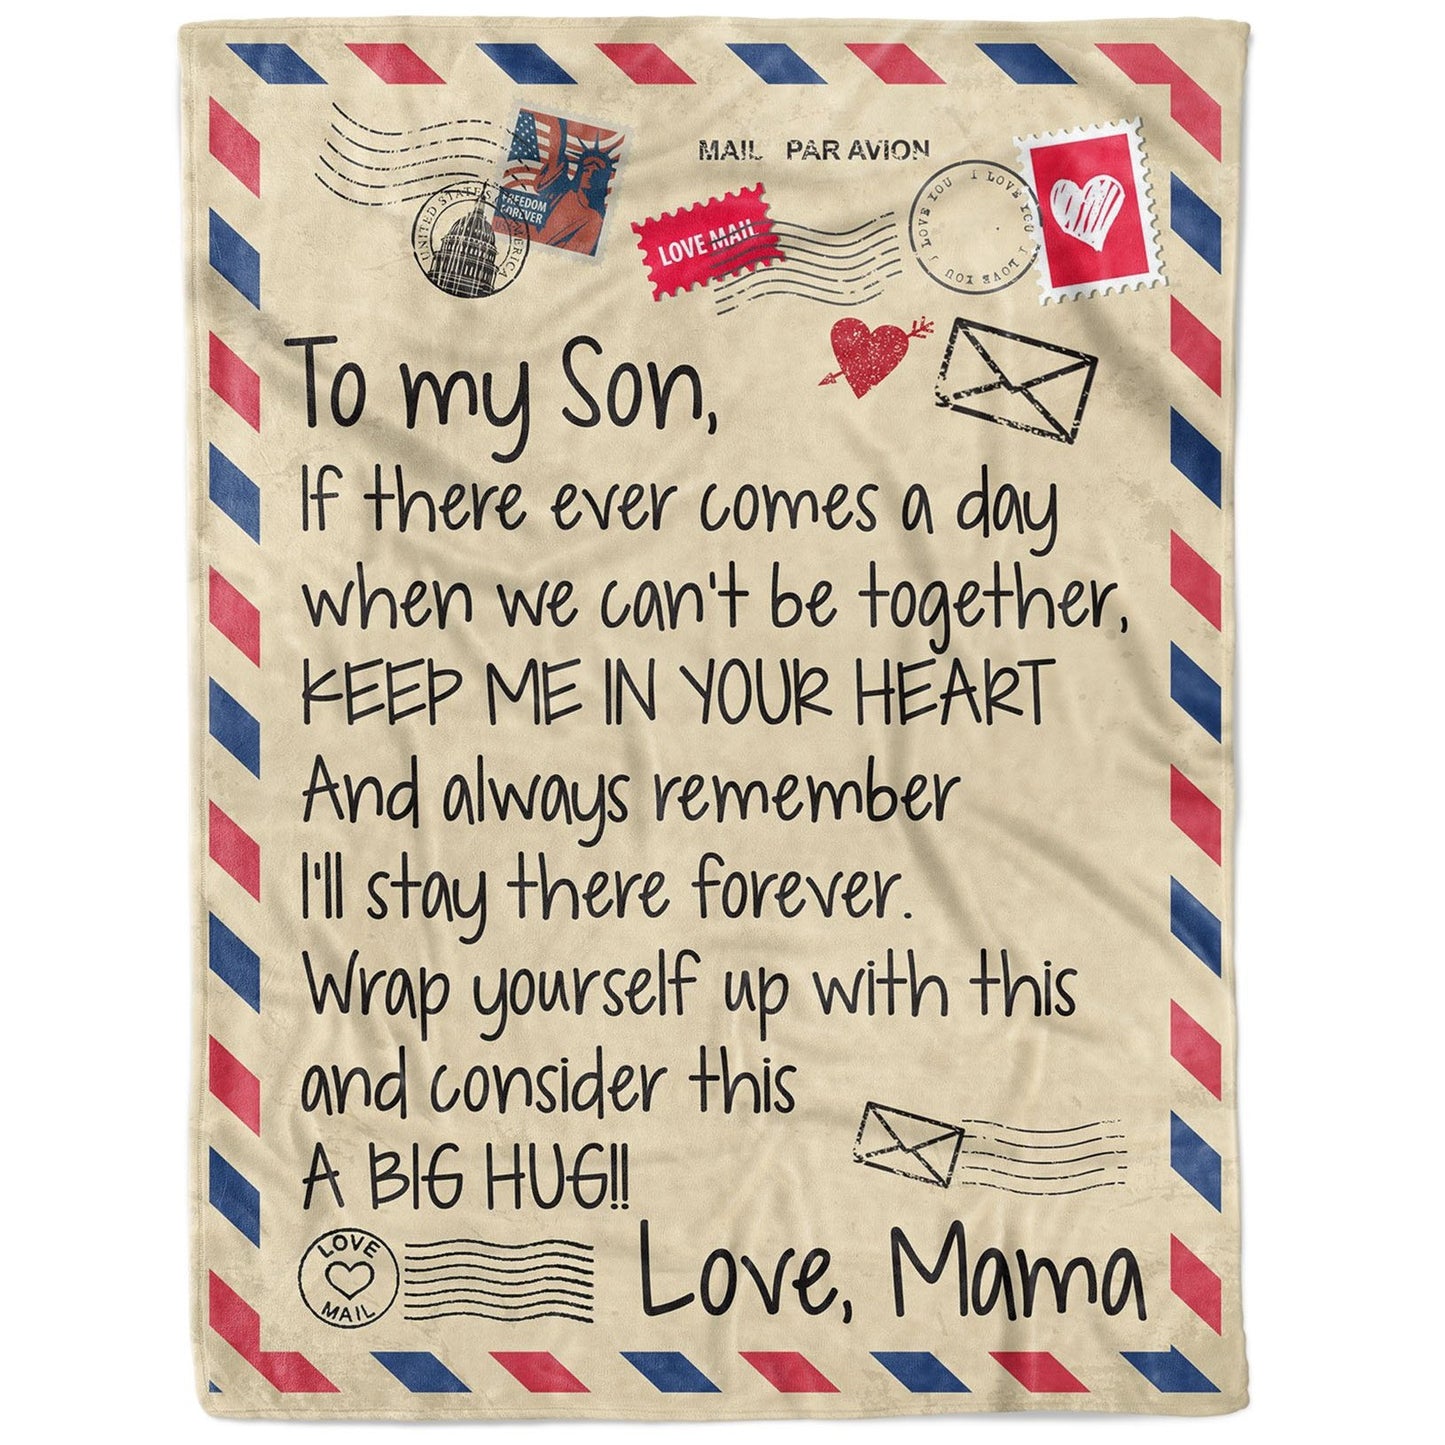 MAIL PAR AVION
FREEDOM
FOREVER
UNITED STATES AMERICA
LOVE MAIL
I LOVE YOU I LOVE YOU I LOVE YOU
To my Son,
If there ever comes a day
when we can't be together,
KEEP ME IN YOUR HEART
And always remember
I'll stay there forever.
Wrap yourself up with this
and consider this
A BIG HUG!!
LOVE
MAIL
Love, Mama